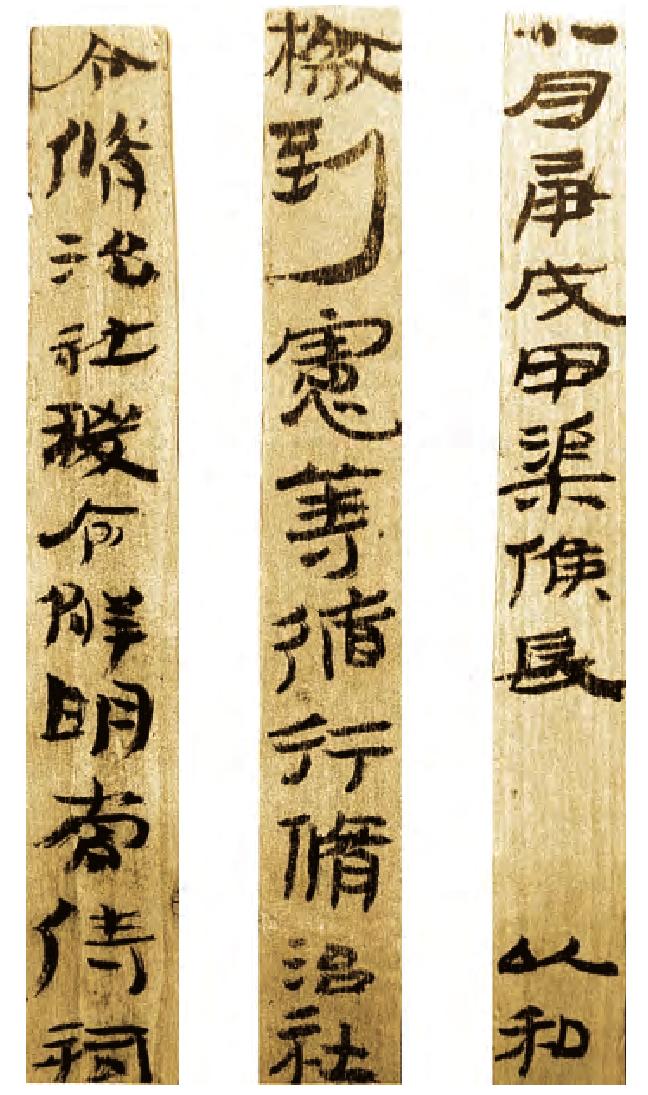 八月庚戌甲渠候長　以私
檄到憲等循行脩治社
令脩治社稷令鮮明當侍祠